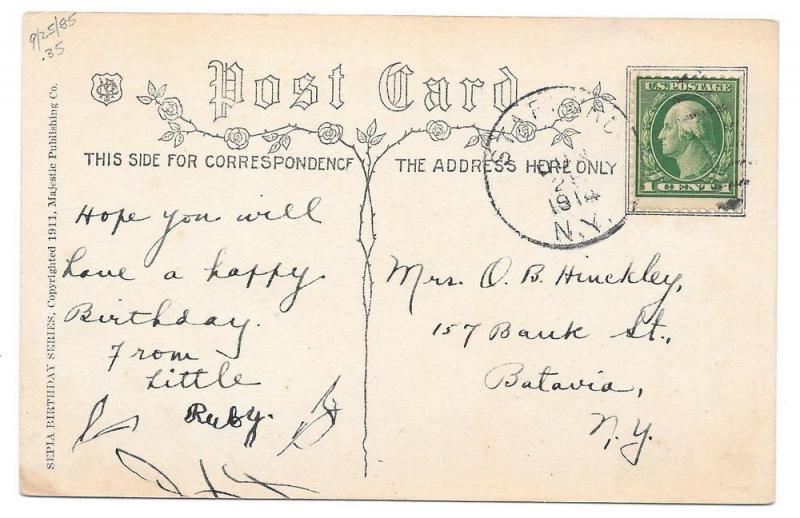 9/25/85
.35
Post Card
THIS SIDE FOR CORRESPONDENCE
THE ADDRESS HERE ONLY
U.S. POSTAGE
1 CENT
STAFFORD
1914
N.Y.
SEPIA BIRTHDAY SERIES, Copyrighted 1911, Majestic Publishing Co.
Hope you will
have a happy
Birthday.
From
Little
Ruby.
Mrs. O. B. Hinckley,
157 Bank St.,
Batavia,
N.Y.